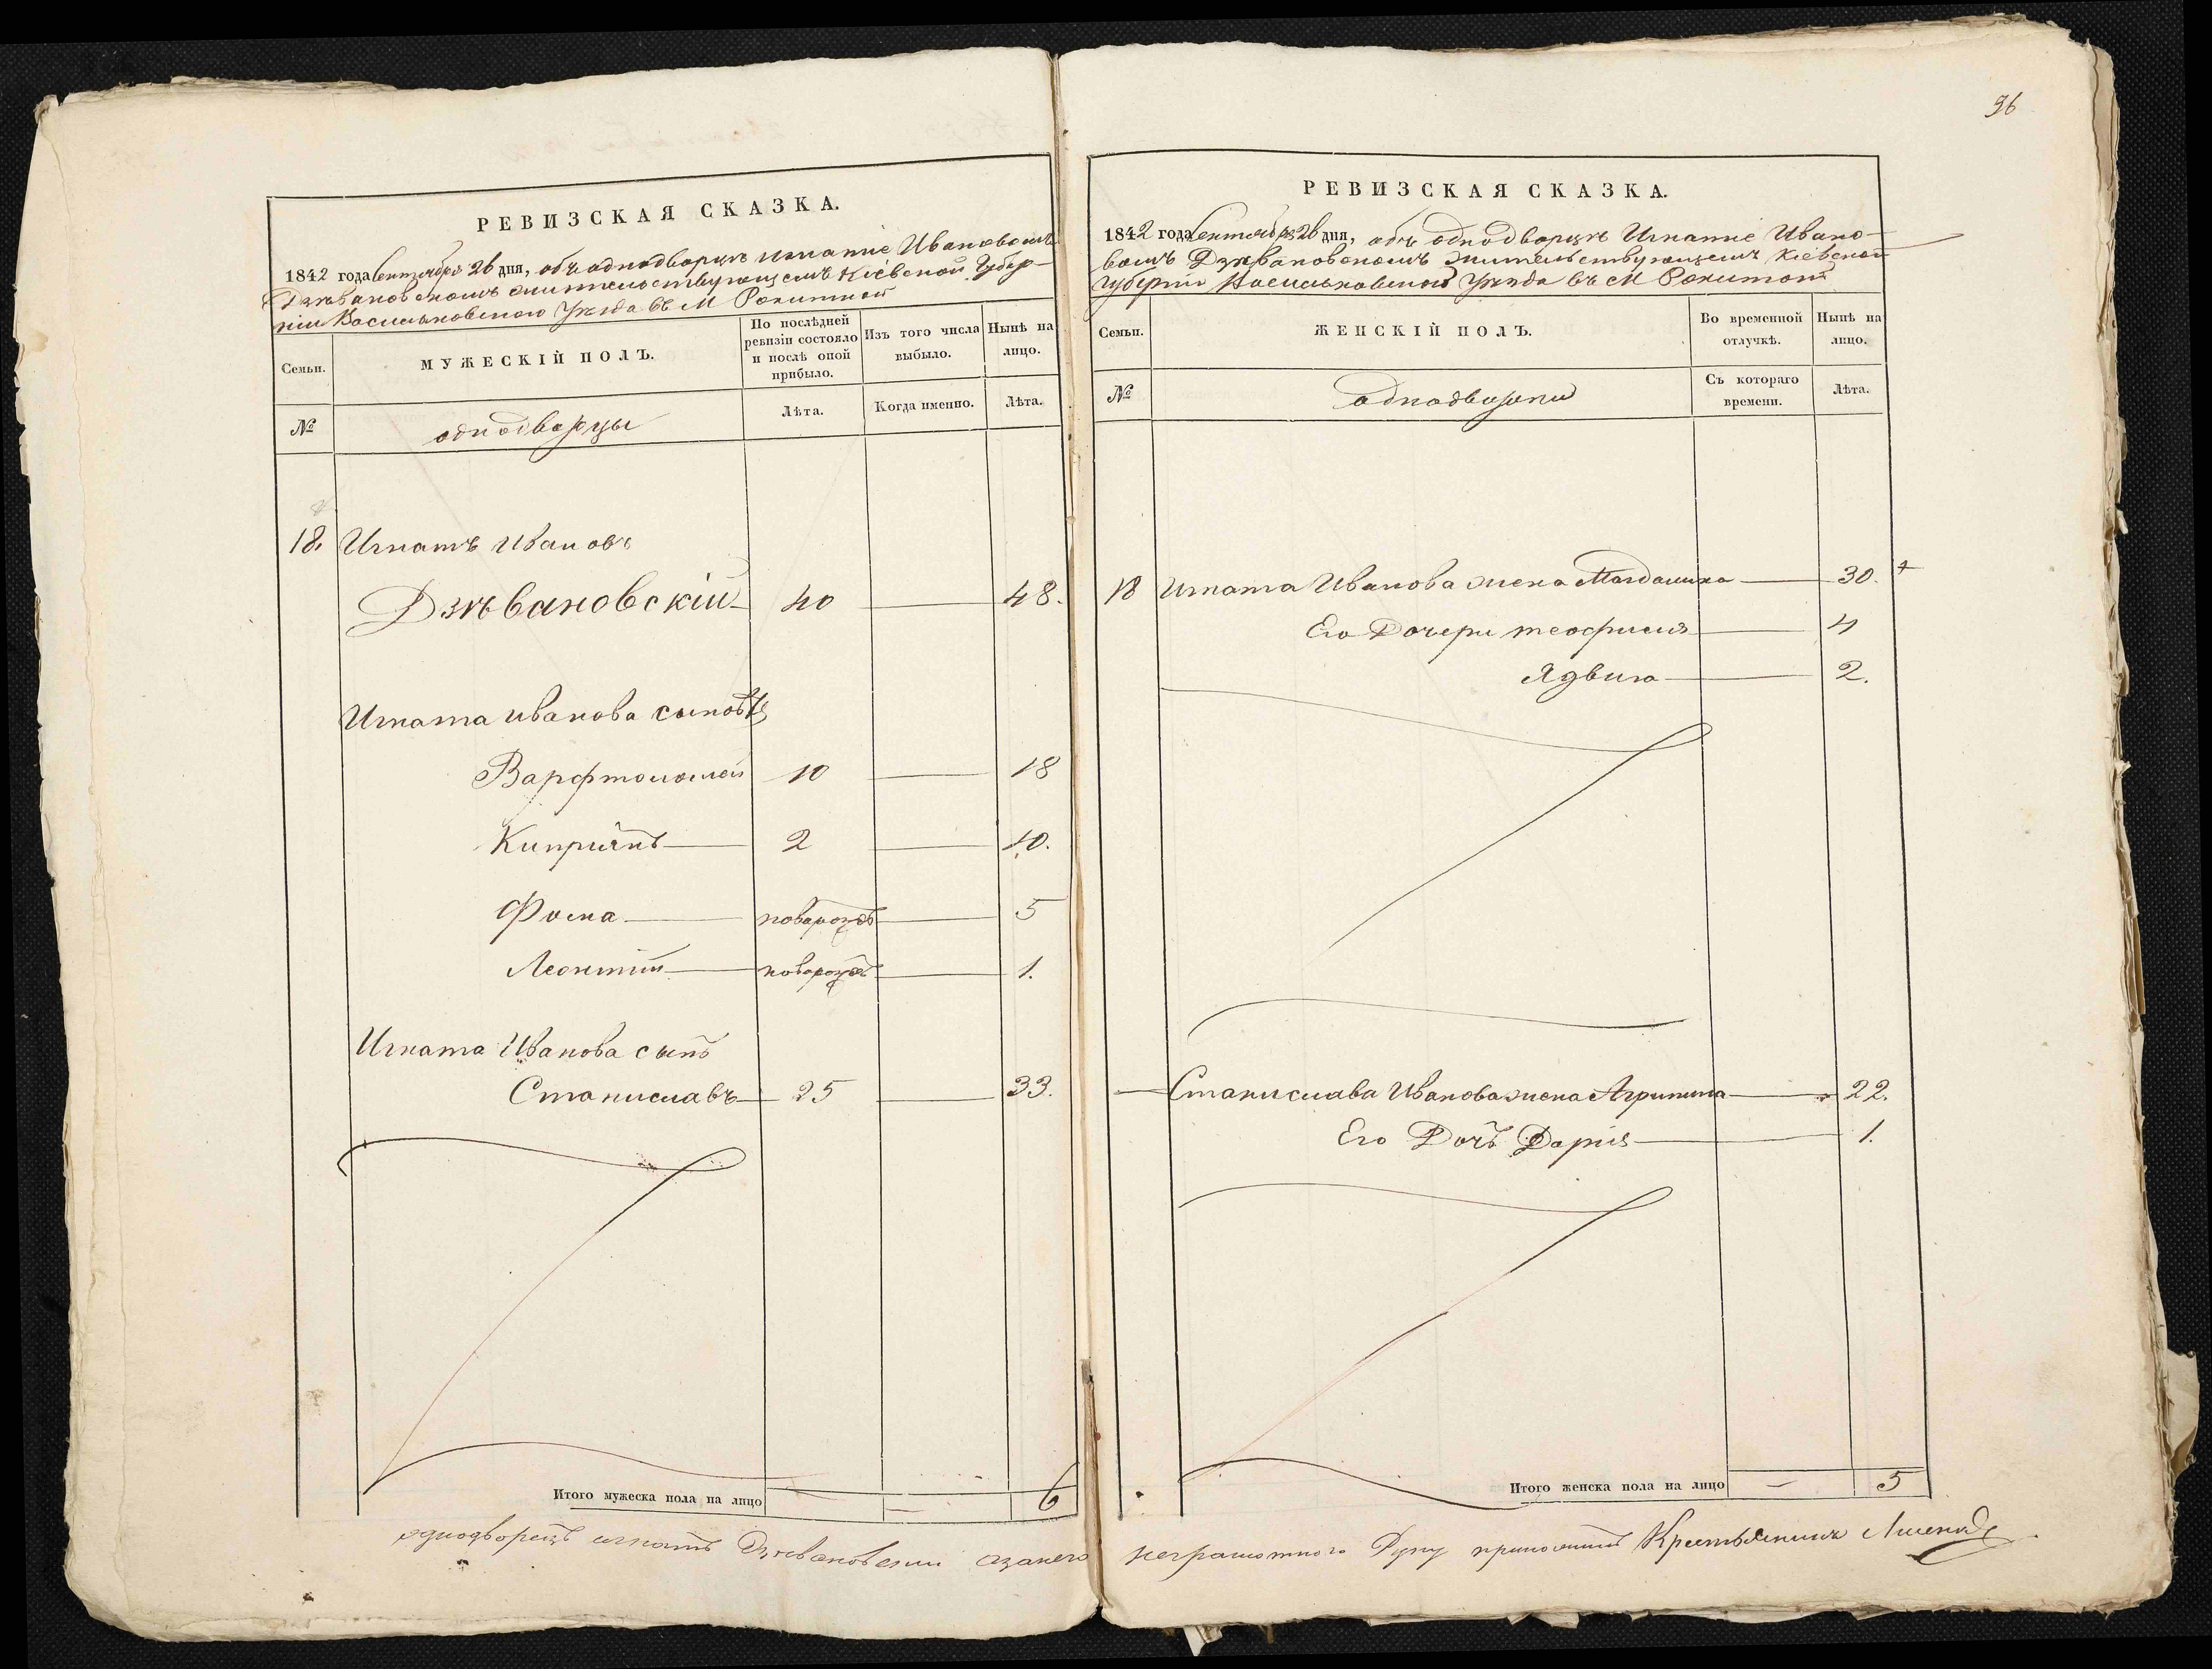 РЕВИЗСКАЯ СКАЗКА.
1842 года Сентября 26 дня, объ однодворцѣ Игнатіе Ивановомъ
Дзѣвановскомъ жительствующемъ Кіевской Губер-
ніи Васильковского Уѣзда въ М Рокитной
Семьи.
МУЖЕСКІЙ ПОЛЪ.
По послѣдней ревизіи состояло и послѣ оной прибыло.
Изъ того числа выбыло.
Нынѣ на лицо.
№
однодворцы
Лѣта.
Когда именно.
Лѣта.
18. Игнатъ Ивановъ
Дзѣвановскій 40 48.
Игната Иванова сыновья
Варфтоломей 10 18
Кипріянъ 2 10.
Фома новорожд 5
Леонтій новорожд 1.
Игната Иванова сынъ
Станиславъ 25 33.
Итого мужеска пола на лицо — 6
однодворецъ игнатъ Дзѣвановскій а занего
96
РЕВИЗСКАЯ СКАЗКА.
1842 года Сентября 26 дня, объ однодворцѣ Игнатіе Ивано-
вомъ Дзѣвановскомъ жительствующемъ Кіевской
Губерніи Васильковского Уѣзда въ М Рокитной
Семьи.
ЖЕНСКІЙ ПОЛЪ.
Во временной отлучкѣ.
Нынѣ на лицо.
№
однодворки
Съ котораго времени.
Лѣта.
18 Игната Иванова жена Магдалина 30.
Его Дочери теофилия 4
Ядвига 2.
Станислава Иванова жена Агрипина 22.
Его Дочъ Дарія 1.
Итого женска пола на лицо — 5
неграмотного Руку приложилъ Крестьянинъ